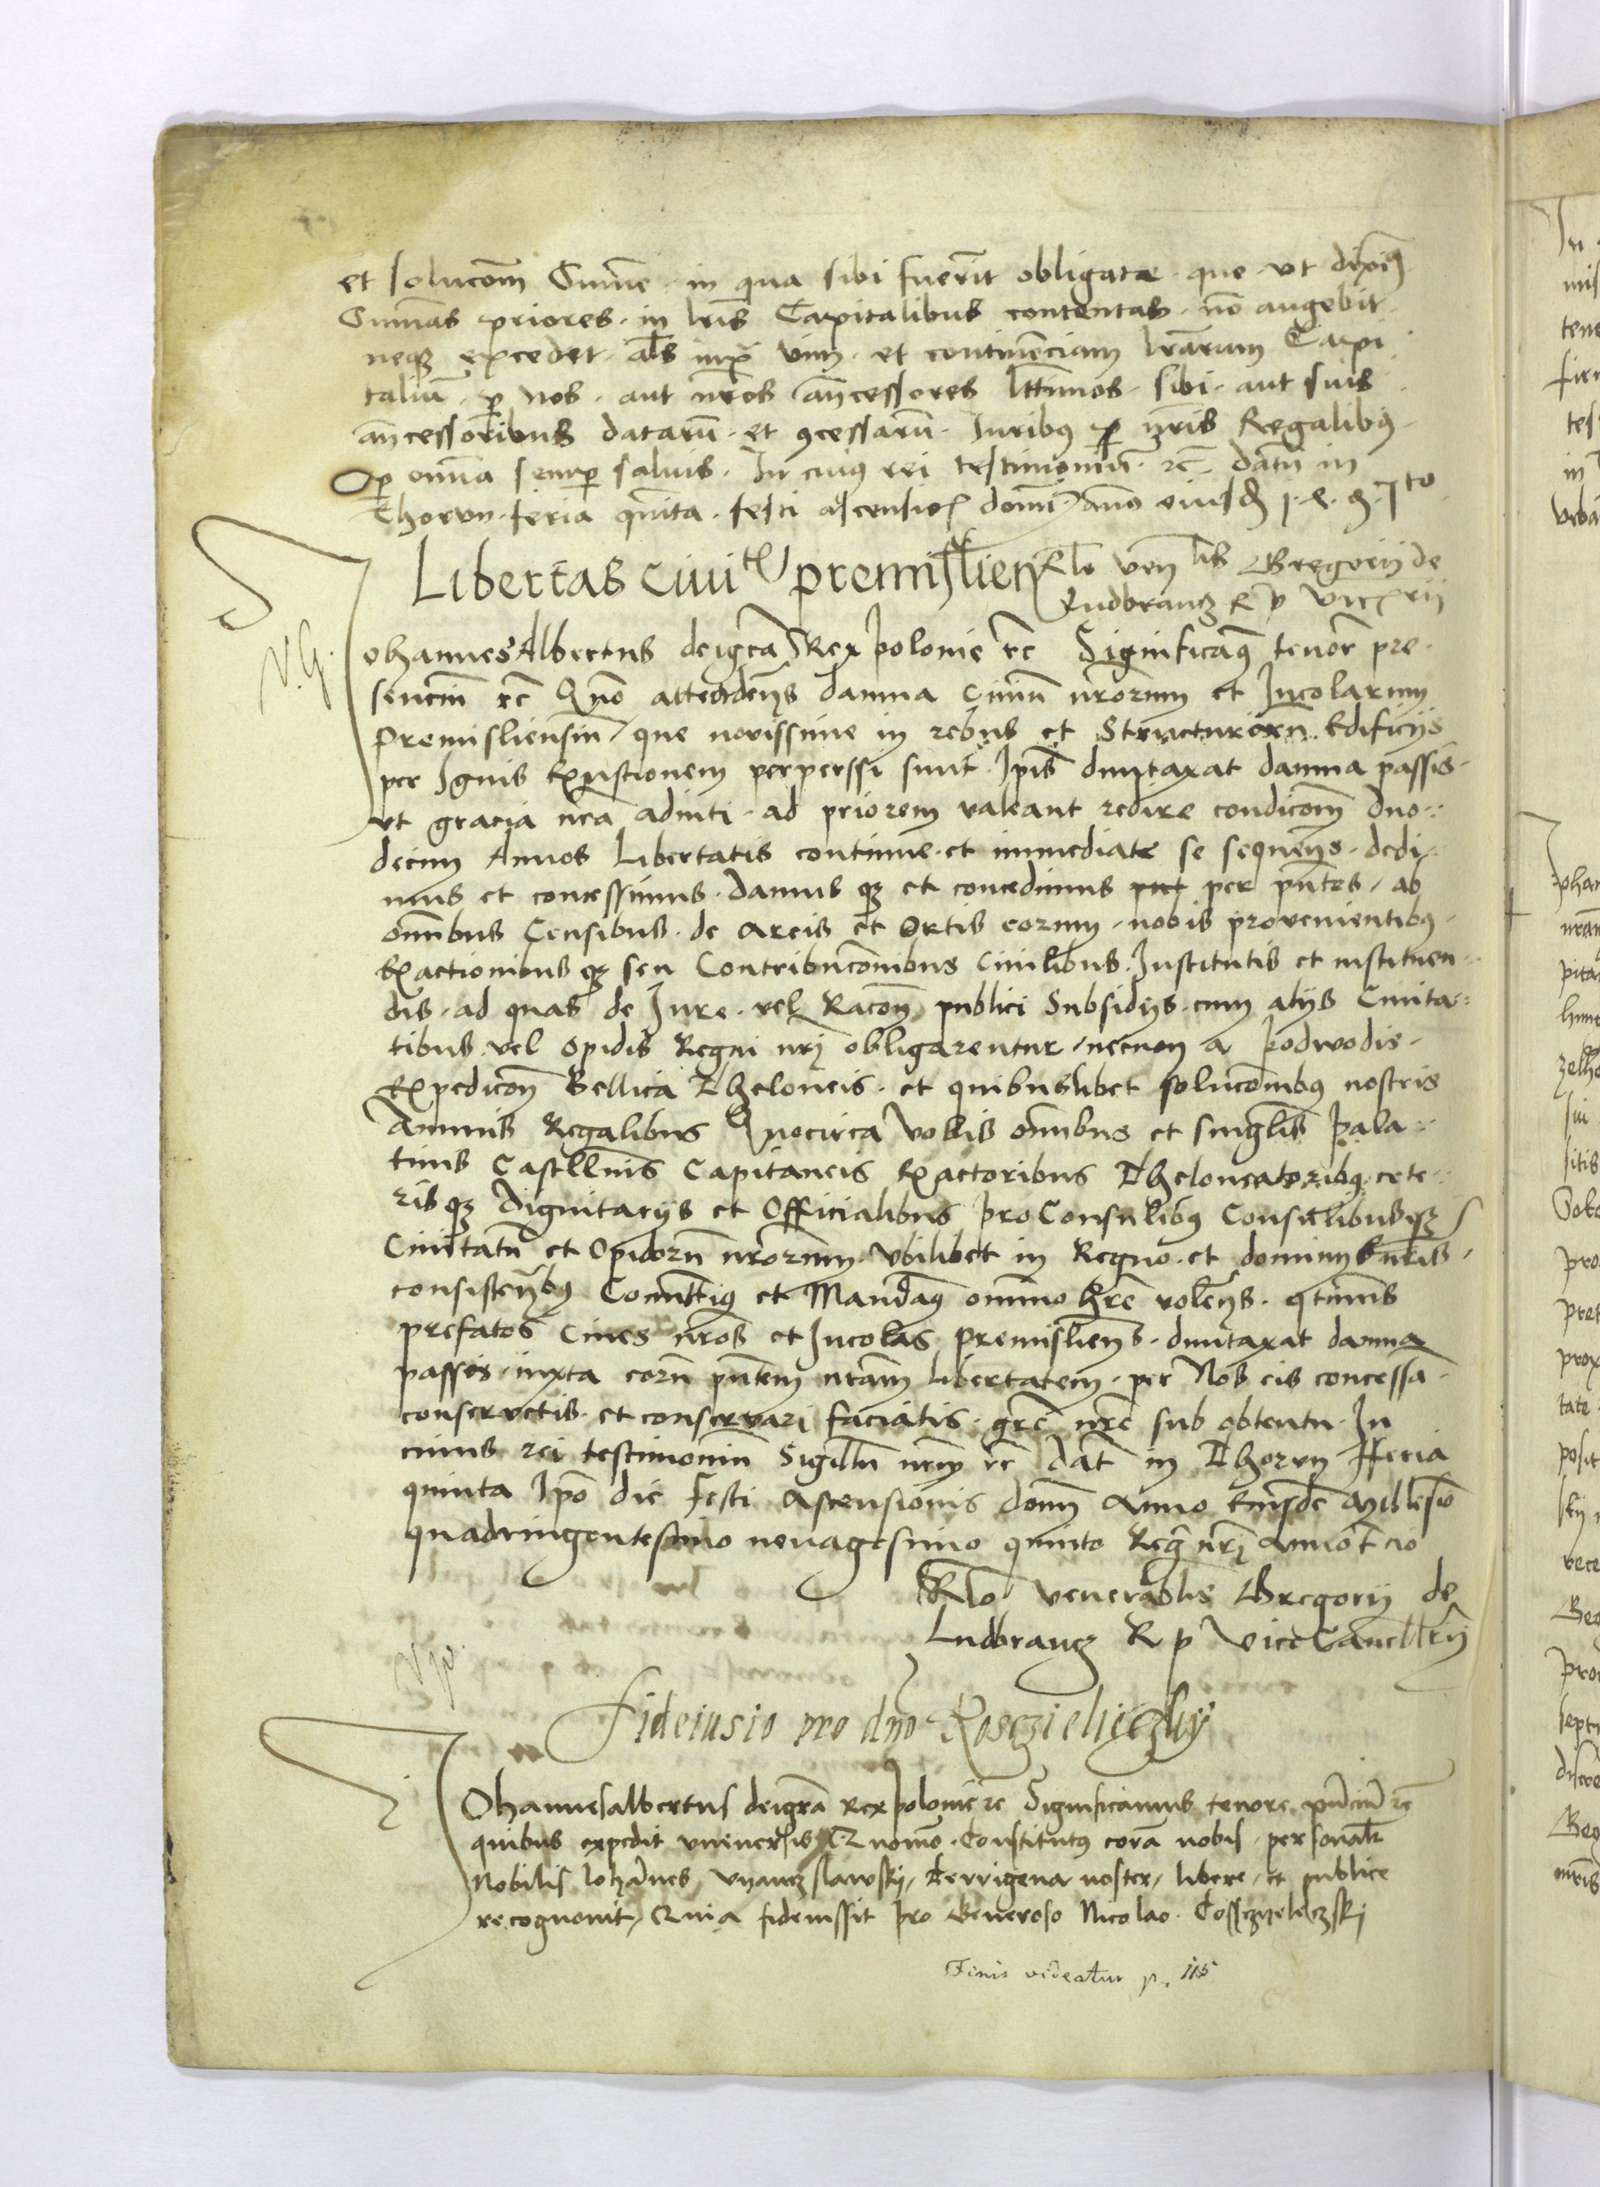 et solucom̄ Sum̄e in qua sibi fuerit obligata que ut diximꝰ
Sum̄as priores in lr̄is Capitalibus contentas no augebit
neqꝫ excedet als iuxa vim et continenciam lrarum Capi
taliū ꝑ nos aut nr̄os ancessores lttimos sibi aut suis
ancessoribus datarū et ꝯcessarū Iuribꝰ ꝑ nr̄is Regalibꝰ
ꝑ omnia semꝑ saluis In cuiꝰ rei testimoniū rc̄ datū in
Thorun feria quīta festi ascensioꝭ domī an̄o eiusd 1·4·9·5to
Libertas ciuitꝭ premislien̄ Rlō ven lis Gregorij de
Ludbrancz R p Vicꝭrij
V. G.
Johannes Albertus dei gr̄a Rex polonie rc̄ Significamꝰ tenor̄ pre
senciū rc̄ Quo attendentes damna Ciuiū nr̄orum et Incolarum
Premisliensiū que novissime in rebus et Structuris eorū Edificijs
per Ignis Exustionem perperssi sunt Ipīs dumtaxat damna passis
ut gracia nr̄a adiuti ad priorem valeant redire condicom̄ duo
decim Annos Libertatis continue et immediate se sequentes dedi
mus et concessimus Damus qꝫ et concedimus per pn̄tes ab
omnibus Censibus de areis et Ortis eorum nobis provenientibꝰ
Exactionibus qꝫ seu Contribucoībus Ciuilibus Institutis et instituen
dis ad quas de Iure vel Racoē publici Subsidijs cum alijs Ciuita
tibus vel opidis Regni nr̄i obligarentur necnon a podwodis
Expedicoē Bellica Theloneis et quibuslibet solucoībꝰ nostris
Annuis Regalibus Quocirca vobis omībus et singlis Pala
tinis Castllanis Capitaneis Exactoribus Theloneatoribꝰ cete
ris qꝫ dignitarijs et Officialibus proConsulibꝰ Consulibusqꝫ
Ciuitatū et Opidorū nr̄orum ubilibet in Regno et dominijs nr̄is
consistentibꝰ Comittimꝰ et Mandamꝰ omnino hr̄e volentes qtinus
prefatos Ciues nr̄os et Incolas premisliens dumtaxat damna
passos iuxta eorū pn̄tem nr̄am libertatem per Nos eis concessā
conservetis et conservari faciatis gre nr̄e sub obtentu In
cuius rei testimoniū Sigillū nr̄m rc̄ Dat in Thorun Feria
quinta Ipo die Festi Ascensionis domī Anno Eiusdē Millesīo
quadringentesimo nonagesimo quinto Regi nr̄i Anno Tcio
Rlō venerablis Gregorij de
Ludbrancz R p ViceCancllrij
Fideiusio pro dño Kosczielyeczky
Johannesalbertus dei gr̄a Rex polonie rc̄ Significamus tenore pn̄ciū rc̄
quibus expedit universis Quomō Constitutꝰ corā nobis personalr
Nobilis Iohannes terrigena noster libere et publice
recognouit Quia fideiussit pro Generoso Nicolao Cosczyeleczskj
Finis videatur p. 115